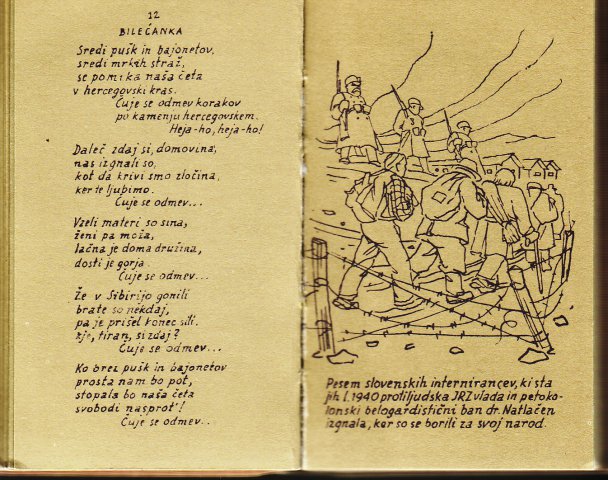 12
BILEĆANKA
Sredi pušk in bajonetov,
sredi mrkih straž,
se pomika naša četa
v hercegovski kras.
Čuje se odmev korakov
po kamenju hercegovskem.
Heja-ho, heja-ho!
Daleč zdaj si, domovina,
nas izgnali so,
kot da krivi smo zločina,
ker te ljubimo.
Čuje se odmev...
Vzeli materi so sina,
ženi pa moža,
lačna je doma družina,
dosti je gorja.
Čuje se odmev...
Že v Sibirijo gonili
brate so nekdaj,
pa je prišel konec sili.
Kje, tiran, si zdaj?
Čuje se odmev...
Ko brez pušk in bajonetov
prosta nam bo pot,
stopala bo naša četa
svobodi nasprot'!
Čuje se odmev...
Pesem slovenskih internirancev, ki sta
jih l. 1940 protiljudska JRZ vlada in petoko-
lonski belogardistični ban dr. Natlačen
izgnala, ker so se borili za svoj narod.